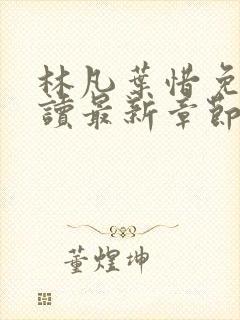 林凡葉惜免
讀最新章節
董煌坤